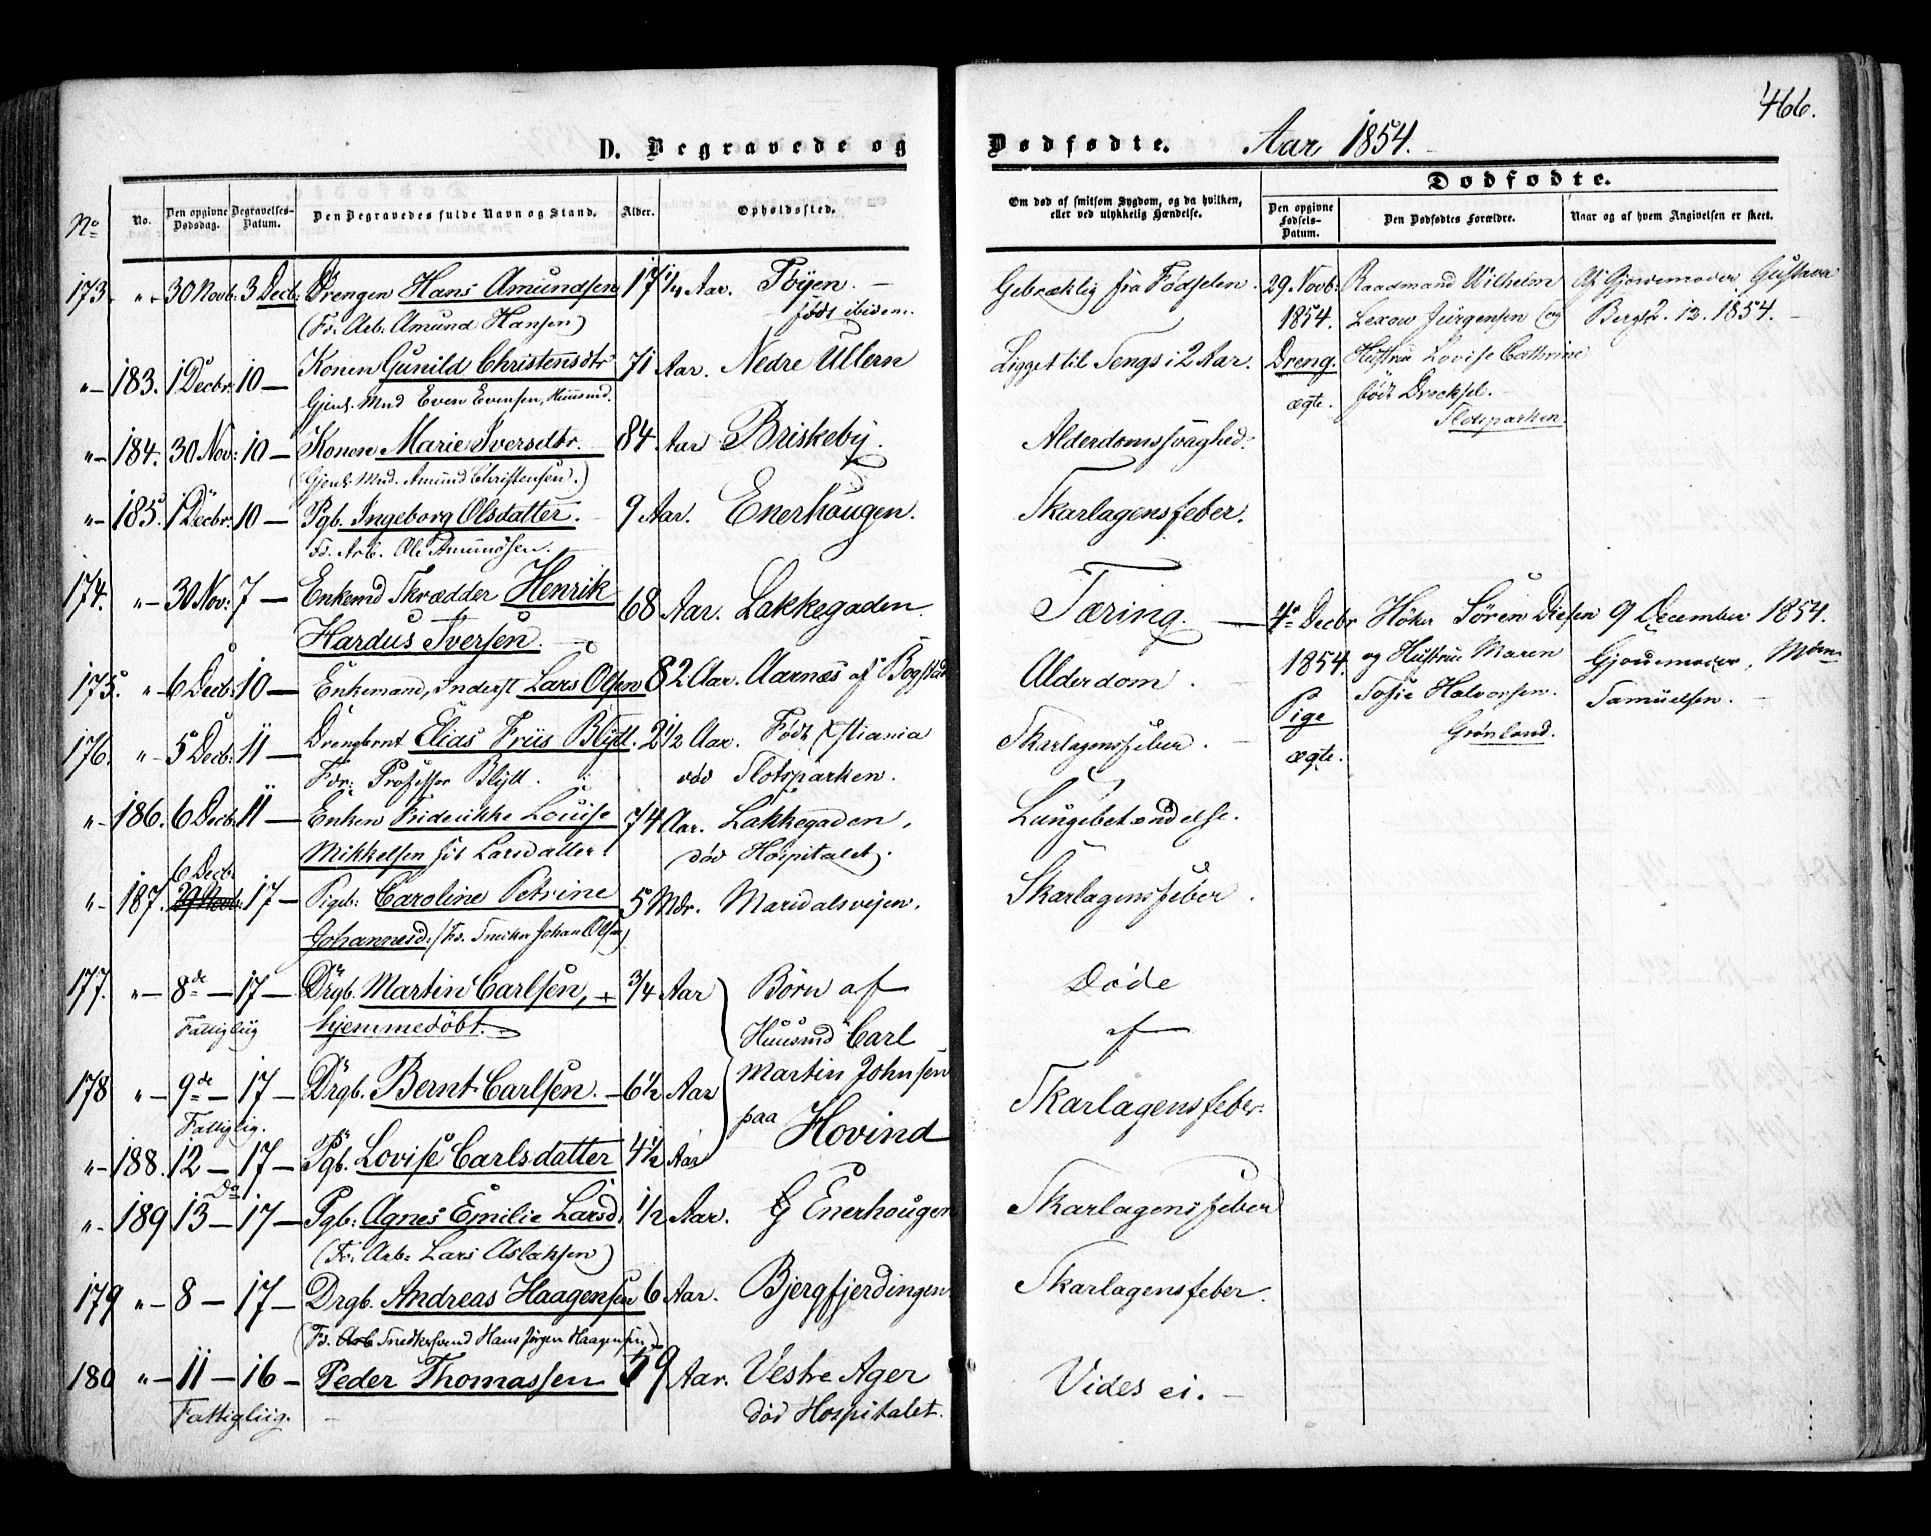 466.
D. Begravede og Dødfødte. Aar 1854.
Dødfødte.
No
No.
Den opgivne Dødsdag.
Begravelses-Datum.
Den Begravedes fulde Navn og Stand.
Alder.
Opholdssted.
Om død af smitsom Sygdom, og da hvilken, eller ved ulykkelig Hændelse.
Den opgivne Fødsels-Datum.
Den Dødfødtes Forældre.
Naar og af hvem Angivelsen er skeet.
173. "— 30 Novb: 3 Decb: Drengen Hans Amundsen 17 1/4 Aar. Töyen. — Gebræklig fra Fødselen.
(Fd. Arb. Amund Hansen) født ibidem.
"— 183. 1 Decbr: 10 — Konen Gunild Christensdtr 71 Aar. Nedre Ullern Ligget til Sengs i 2 Aar.
Gjenl. Mnd Even Evensen, Huusmd.
"— 184. 30 Nov: 10 — Konen Marie Iversdtr. 84 Aar Briskeby. Alderdomssvaghed.
(Gjenl. Mnd. Amund Christensen.)
"— 185. 1 Decbr: 10 — Pgb. Ingeborg Olsdatter. 9 Aar. Enerhougen. Skarlagensfeber.
Fd. Arb. Ole Amundsen.
174. "— 30 Nov: 7 — Enkemd Skrædder Henrik 68 Aar. Lakkegaden. Tæring.
Hardus Iversen.
175. " 6 Decb: 10 — Enkemand, Inderst Lars Olsen 82 Aar. Aarnæs af Bogstad Alderdom.
176. " 5 Decb: 11 — Drengbrnt Elias Friis Blytt. 2 1/2 Aar. Født Xstiania Skarlagensfeber.
For: Professor Blytt. död Slotsparken.
"— 186. 6 Decb: 11 — Enken Friderikke Louise 74 Aar. Lakkegaden, Lungebetændelse.
Mikkelsen föd Larsdatter. død Hospitalet.
6 Decb:
"— 187. 29 Novb: 17 — Pigeb: Caroline Petrine 5 Mdr. Maridalsveien. Skarlagensfeber.
Johannesd: (Fd. Snekker Johan Olsen)
177. "— 8de — 17 — Drgb. Martin Carlsen, 3/4 Aar Börn af Døde
Fattigliig hjemmedöbt. Huusmd Carl af
178 "— 9de — 17 — Drgb. Bernt Carlsen. — 6 1/2 Aar Martin Johnsen Skarlagensfeber.
Fattiglig. paa Hovind
"— 188. 12 — 17 — Pgb. Lovise Carlsdatter 4 1/2 Aar
Do
"— 189 13 — 17 — Pgb: Agnes Emilie Larsd. 1/2 Aar. Enerhougen Skarlagensfeber
(Fd. Arb: Lars Aslaksen)
179 "— 8 — 17 — Drgb. Andreas Haagensen 6 Aar. Bjergfjerdingen Skarlagensfeber.
(Fd. Arb Snedkersvend Hans Jörgen Haagensen)
180 "— 11 — 16 — Peder Thomassen 59 Aar. Vestre Ager Vides ei. —
Fattigliig. död Hospitalet.
29. Novb: Raadmand Wilhelm Af Gjordemoder Gustava
1854. Lexow Jürgensen og Berg 2. 12. 1854.
Dreng. Hustru Lovise Cathrine
ægte. født Drecksel.
Slotsparken
4de Decbr Höker Sören Diesen 9 December 1854.
1854. og Hustru Maren Gjordemoder,
Pige Sofie Halvorsen. Samuelsen.
ægte. Grønland.